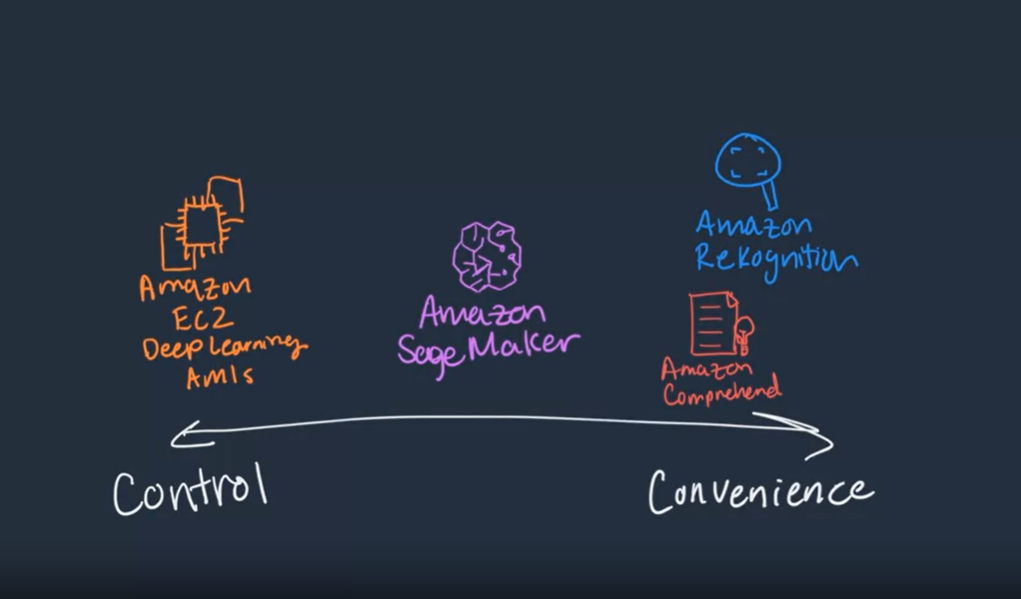 Amazon
EC2
Deep Learning
AMIs
Amazon
SageMaker
Amazon
Rekognition
Amazon
Comprehend
Control
Convenience